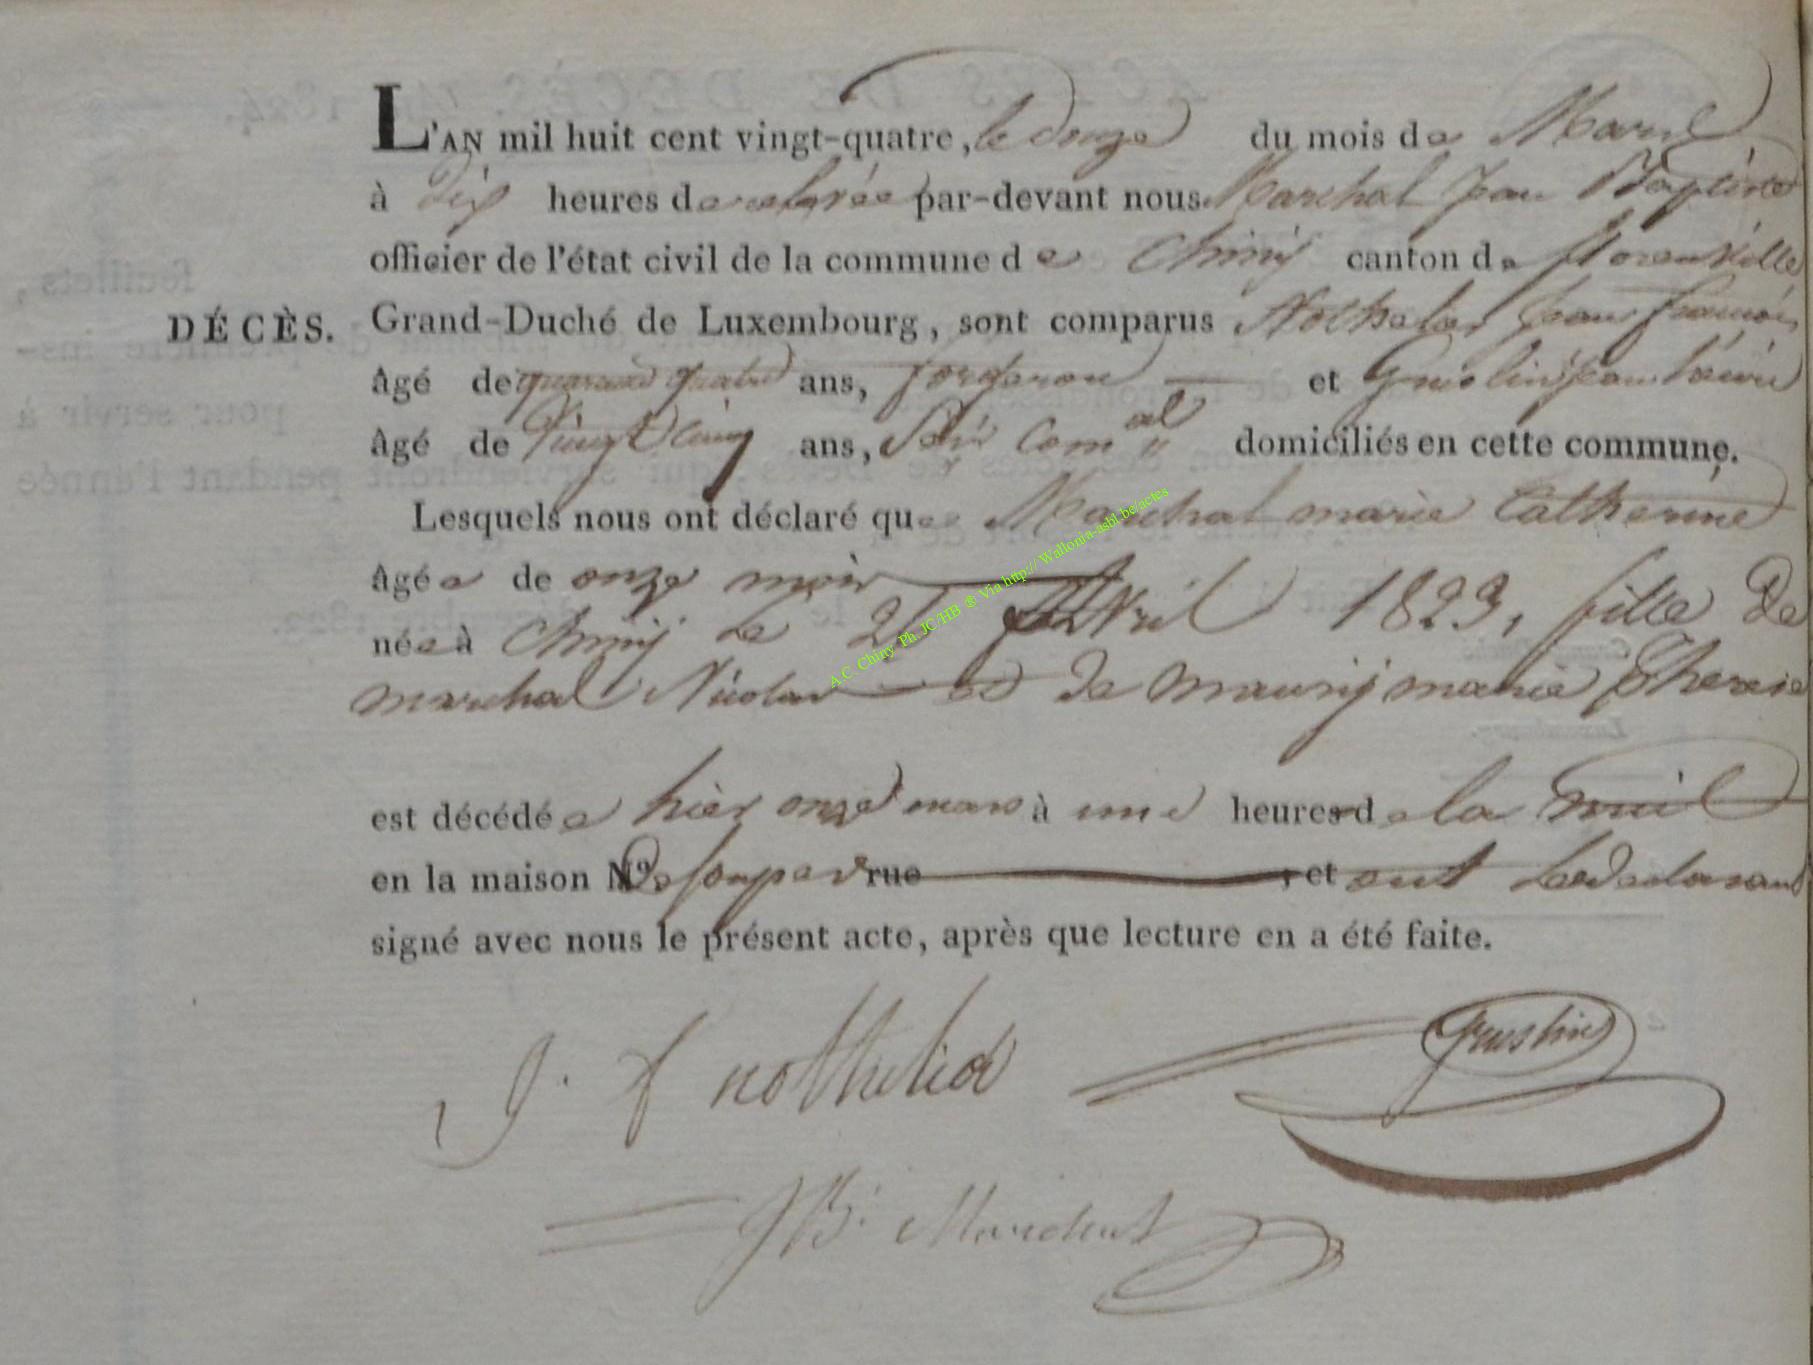 L'AN mil huit cent vingt-quatre, le douze du mois de Mars
à Dix heures de relevée par-devant nous Marchal Jean Baptiste
officier de l'état civil de la commune de Chiny canton de florenville
DÉCÈS. Grand-Duché de Luxembourg, sont comparus Nothelier Jean françois
âgé de quarante quatre ans, forgeron et Jean
âgé de Vingt Cinq ans, domiciliés en cette commune.
Lesquels nous ont déclaré que Marchal marie Catherine
âgée de onze mois
née à Chiny le avril 1823, fille De
marchal Nicolas et de maury marie Therese
est décédée hier onze mars à une heure de la nuit
en la maison De son père rue , et ont les declarant
signé avec nous le présent acte, après que lecture en a été faite.
J. f nothelier
JB. Marchal
A.C. Chiny Ph. JC/HB ® Via http://Wallonia-asbl.be/actes